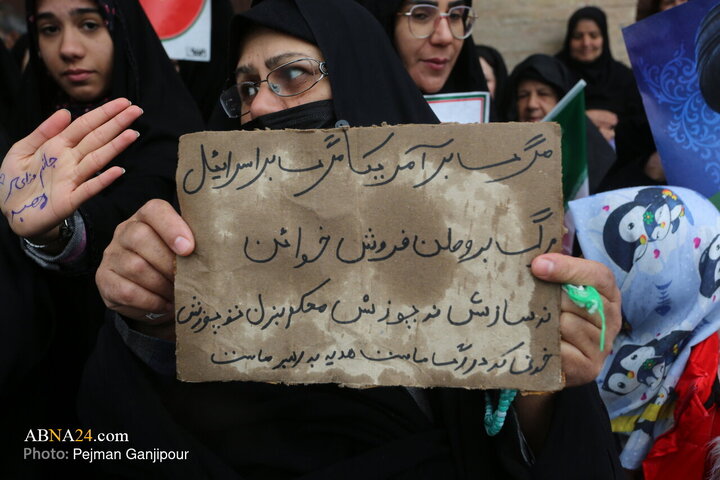 مرگ بر آمریکا مرگ بر اسرائیل
مرگ بر وطن فروش خوائن
نه سازش نه پوزش محکم بزن تو پوزش
در رگ ماست هدیه به رهبر ماست
جانم فدای رهبر
ABNA24.com
Photo: Pejman Ganjipour